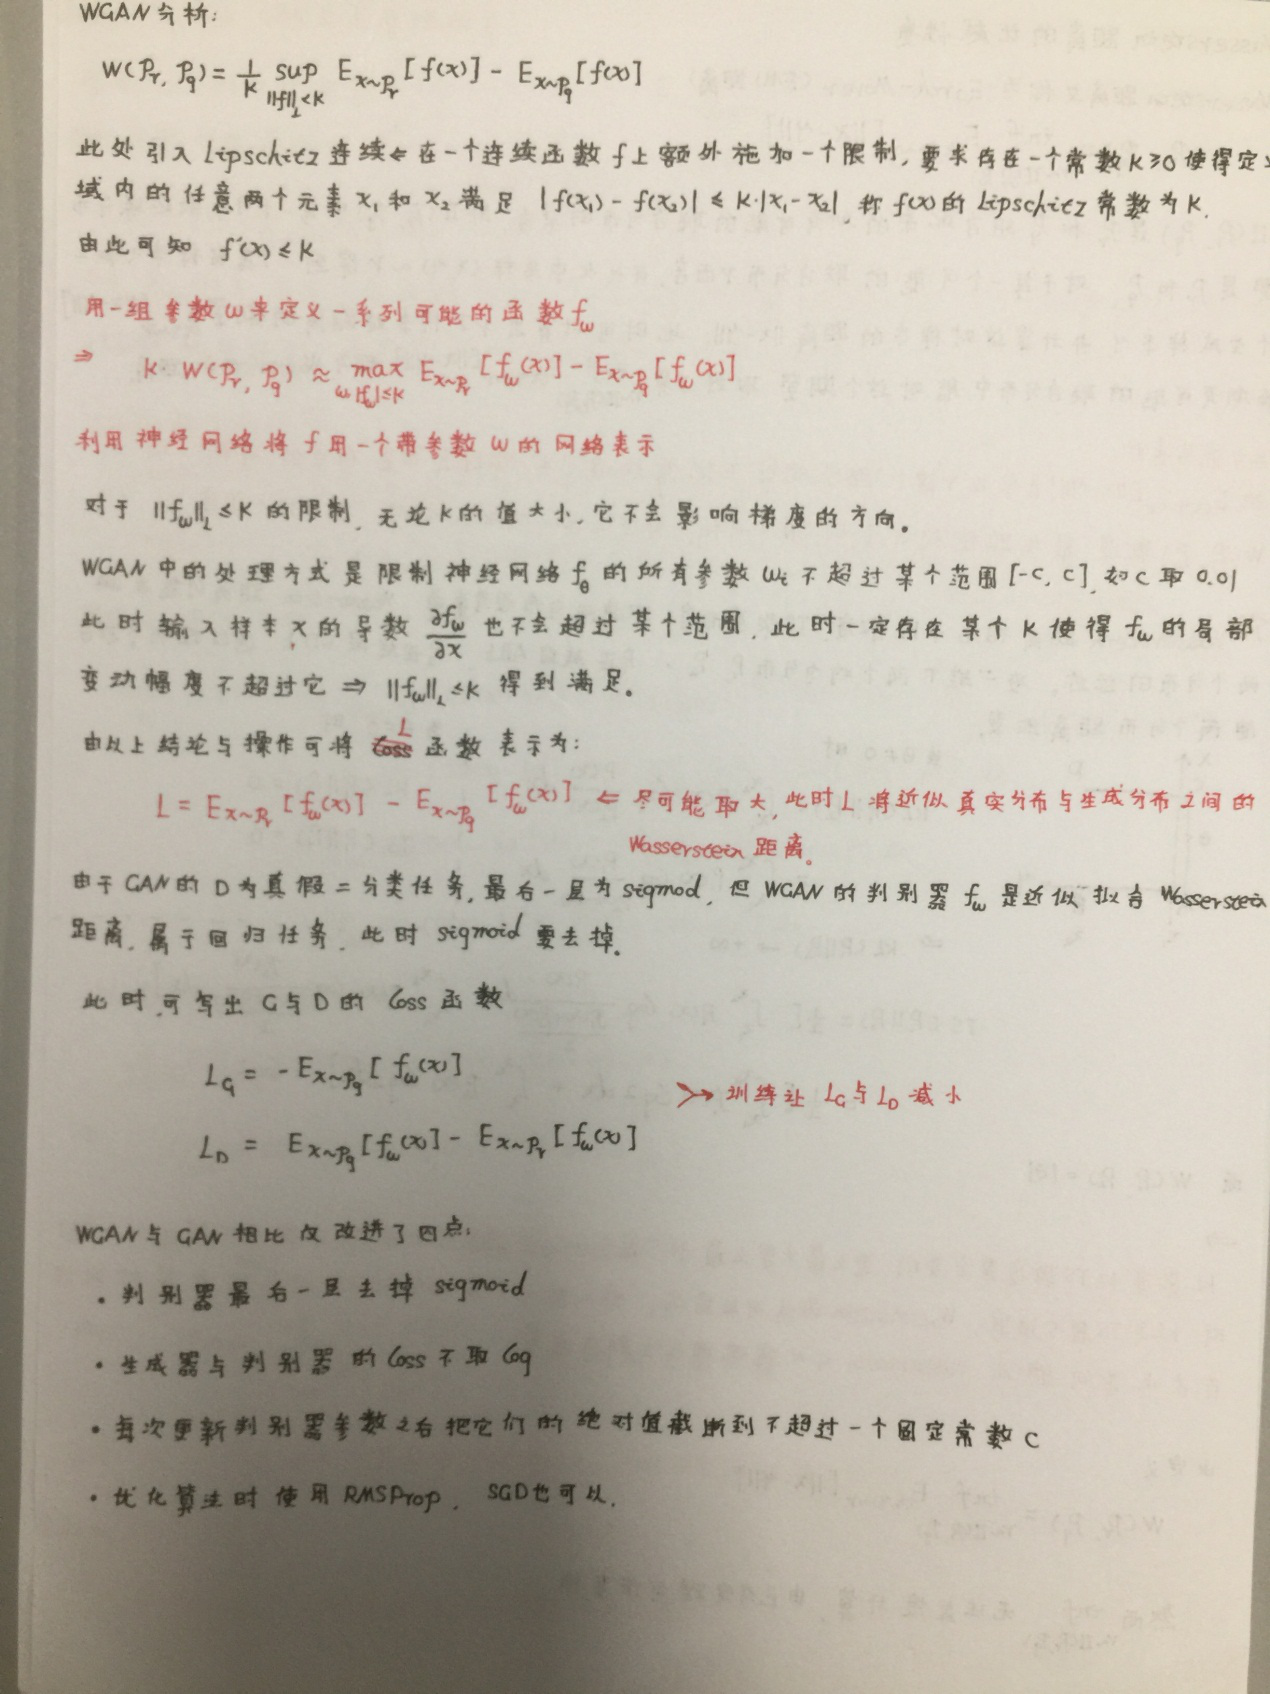 WGAN 分析:
W(Pr, Pg) = 1/K sup ||f||L<K Ex~Pr[f(x)] - Ex~Pg[f(x)]
此处引入 Lipschitz 连续 ← 在一个连续函数 f 上额外施加一个限制, 要求存在一个常数 K≥0 使得定义
域内的任意两个元素 x₁ 和 x₂ 满足 |f(x₁) - f(x₂)| ≤ K·|x₁-x₂|, 称 f(x) 的 Lipschitz 常数为 K.
由此可知 f'(x) ≤ K
用一组参数 ω 来定义一系列可能的函数 fω
⇒ K· W(Pr, Pg) ≈ max ω,|fω|≤K Ex~Pr [fω(x)] - Ex~Pg [fω(x)]
利用神经网络将 f 用一个带参数 ω 的网络表示
对于 ||fω||L ≤ K 的限制, 无论 K 的值大小, 它不会影响梯度的方向。
WGAN 中的处理方式是限制神经网络 fθ 的所有参数 ωi 不超过某个范围 [-c, c], 如 c 取 0.01
此时输入样本 x 的导数 ∂fω/∂x 也不会超过某个范围, 此时一定存在某个 K 使得 fω 的局部
变动幅度不超过它 ⇒ ||fω||L ≤ K 得到满足。
由以上结论与操作可将 L 函数表示为:
L = Ex~Pr [fω(x)] - Ex~Pg [fω(x)] ⇐ 尽可能取大, 此时 L 将近似真实分布与生成分布之间的
Wasserstein 距离。
由于 GAN 的 D 为真假二分类任务, 最后一层为 sigmod, 但 WGAN 的判别器 fω 是近似拟合 Wasserstein
距离, 属于回归任务, 此时 sigmoid 要去掉.
此时, 可写出 G 与 D 的 loss 函数
LG = -Ex~Pg [fω(x)]
LD = Ex~Pg [fω(x)] - Ex~Pr [fω(x)]
→ 训练让 LG 与 LD 减小
WGAN 与 GAN 相比仅改进了四点:
• 判别器最后一层去掉 sigmoid
• 生成器与判别器的 loss 不取 log
• 每次更新判别器参数之后把它们的绝对值截断到不超过一个固定常数 c
• 优化算法时使用 RMSProp, SGD也可以.